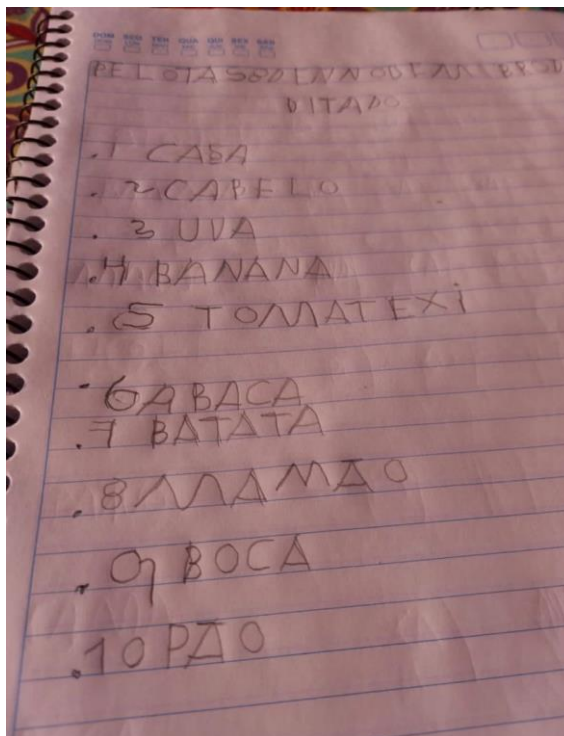 DOM SEG TER QUA QUI SEX SAB
PELOTAS
DITADO
.1 CASA
.2 CABELO
.3 UVA
.4 BANANA
.5 TOMATEXI
.6 ABACA
.7 BATATA
.8 MAMÃO
.9 BOCA
.10 PÃO